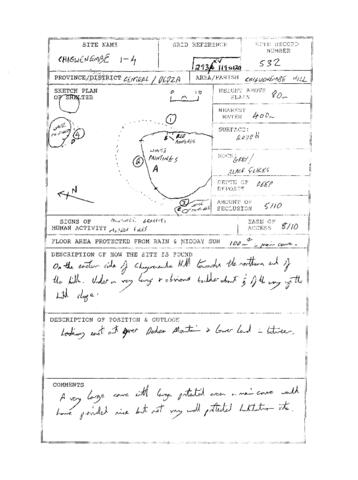 SITE NAME
GRID REFERENCE
SITE RECORD NUMBER
CHIGWENGABE 1-4
532
PROVINCE/DISTRICT CENTRAL / DEDZA
AREA/PARISH HILL
SKETCH PLAN OF SHELTER
0 10
m
HEIGHT ABOVE PLAIN 80m
NEAREST WATER 400m
SURFACE:
EARTH
ROCK:
GREY/
BLACK
DEPTH OF DEPOSIT DEEP
AMOUNT OF SECLUSION 5/10
1
4
WHITE PAINTINGS
A
B RED
2
3
N
SIGNS OF HUMAN ACTIVITY
EASE OF ACCESS 8/10
FLOOR AREA PROTECTED FROM RAIN & MIDDAY SUN 100 m² - main cave.
DESCRIPTION OF HOW THE SITE IS FOUND
On the eastern side of Hill towards the northern end of
the hill. Under a very large & obvious boulder about of the way up the
hill slope.
DESCRIPTION OF POSITION & OUTLOOK
Looking east over Mountain & lower land
COMMENTS
A very large cave with large protected area in main cave would
have provided nice but not very well protected habitation site.